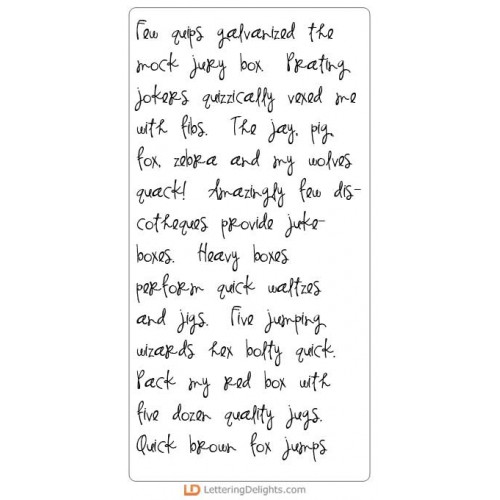 Few quips galvanized the
mock jury box. Prating
jokers quizzically vexed me
with fibs. The jay, pig,
fox, zebra and my wolves
quack! Amazingly few dis-
cotheques provide juke-
boxes. Heavy boxes
perform quick waltzes
and jigs. Five jumping
wizards hex bolty quick.
Pack my red box with
five dozen quality jugs.
Quick brown fox jumps
LD LetteringDelights.com